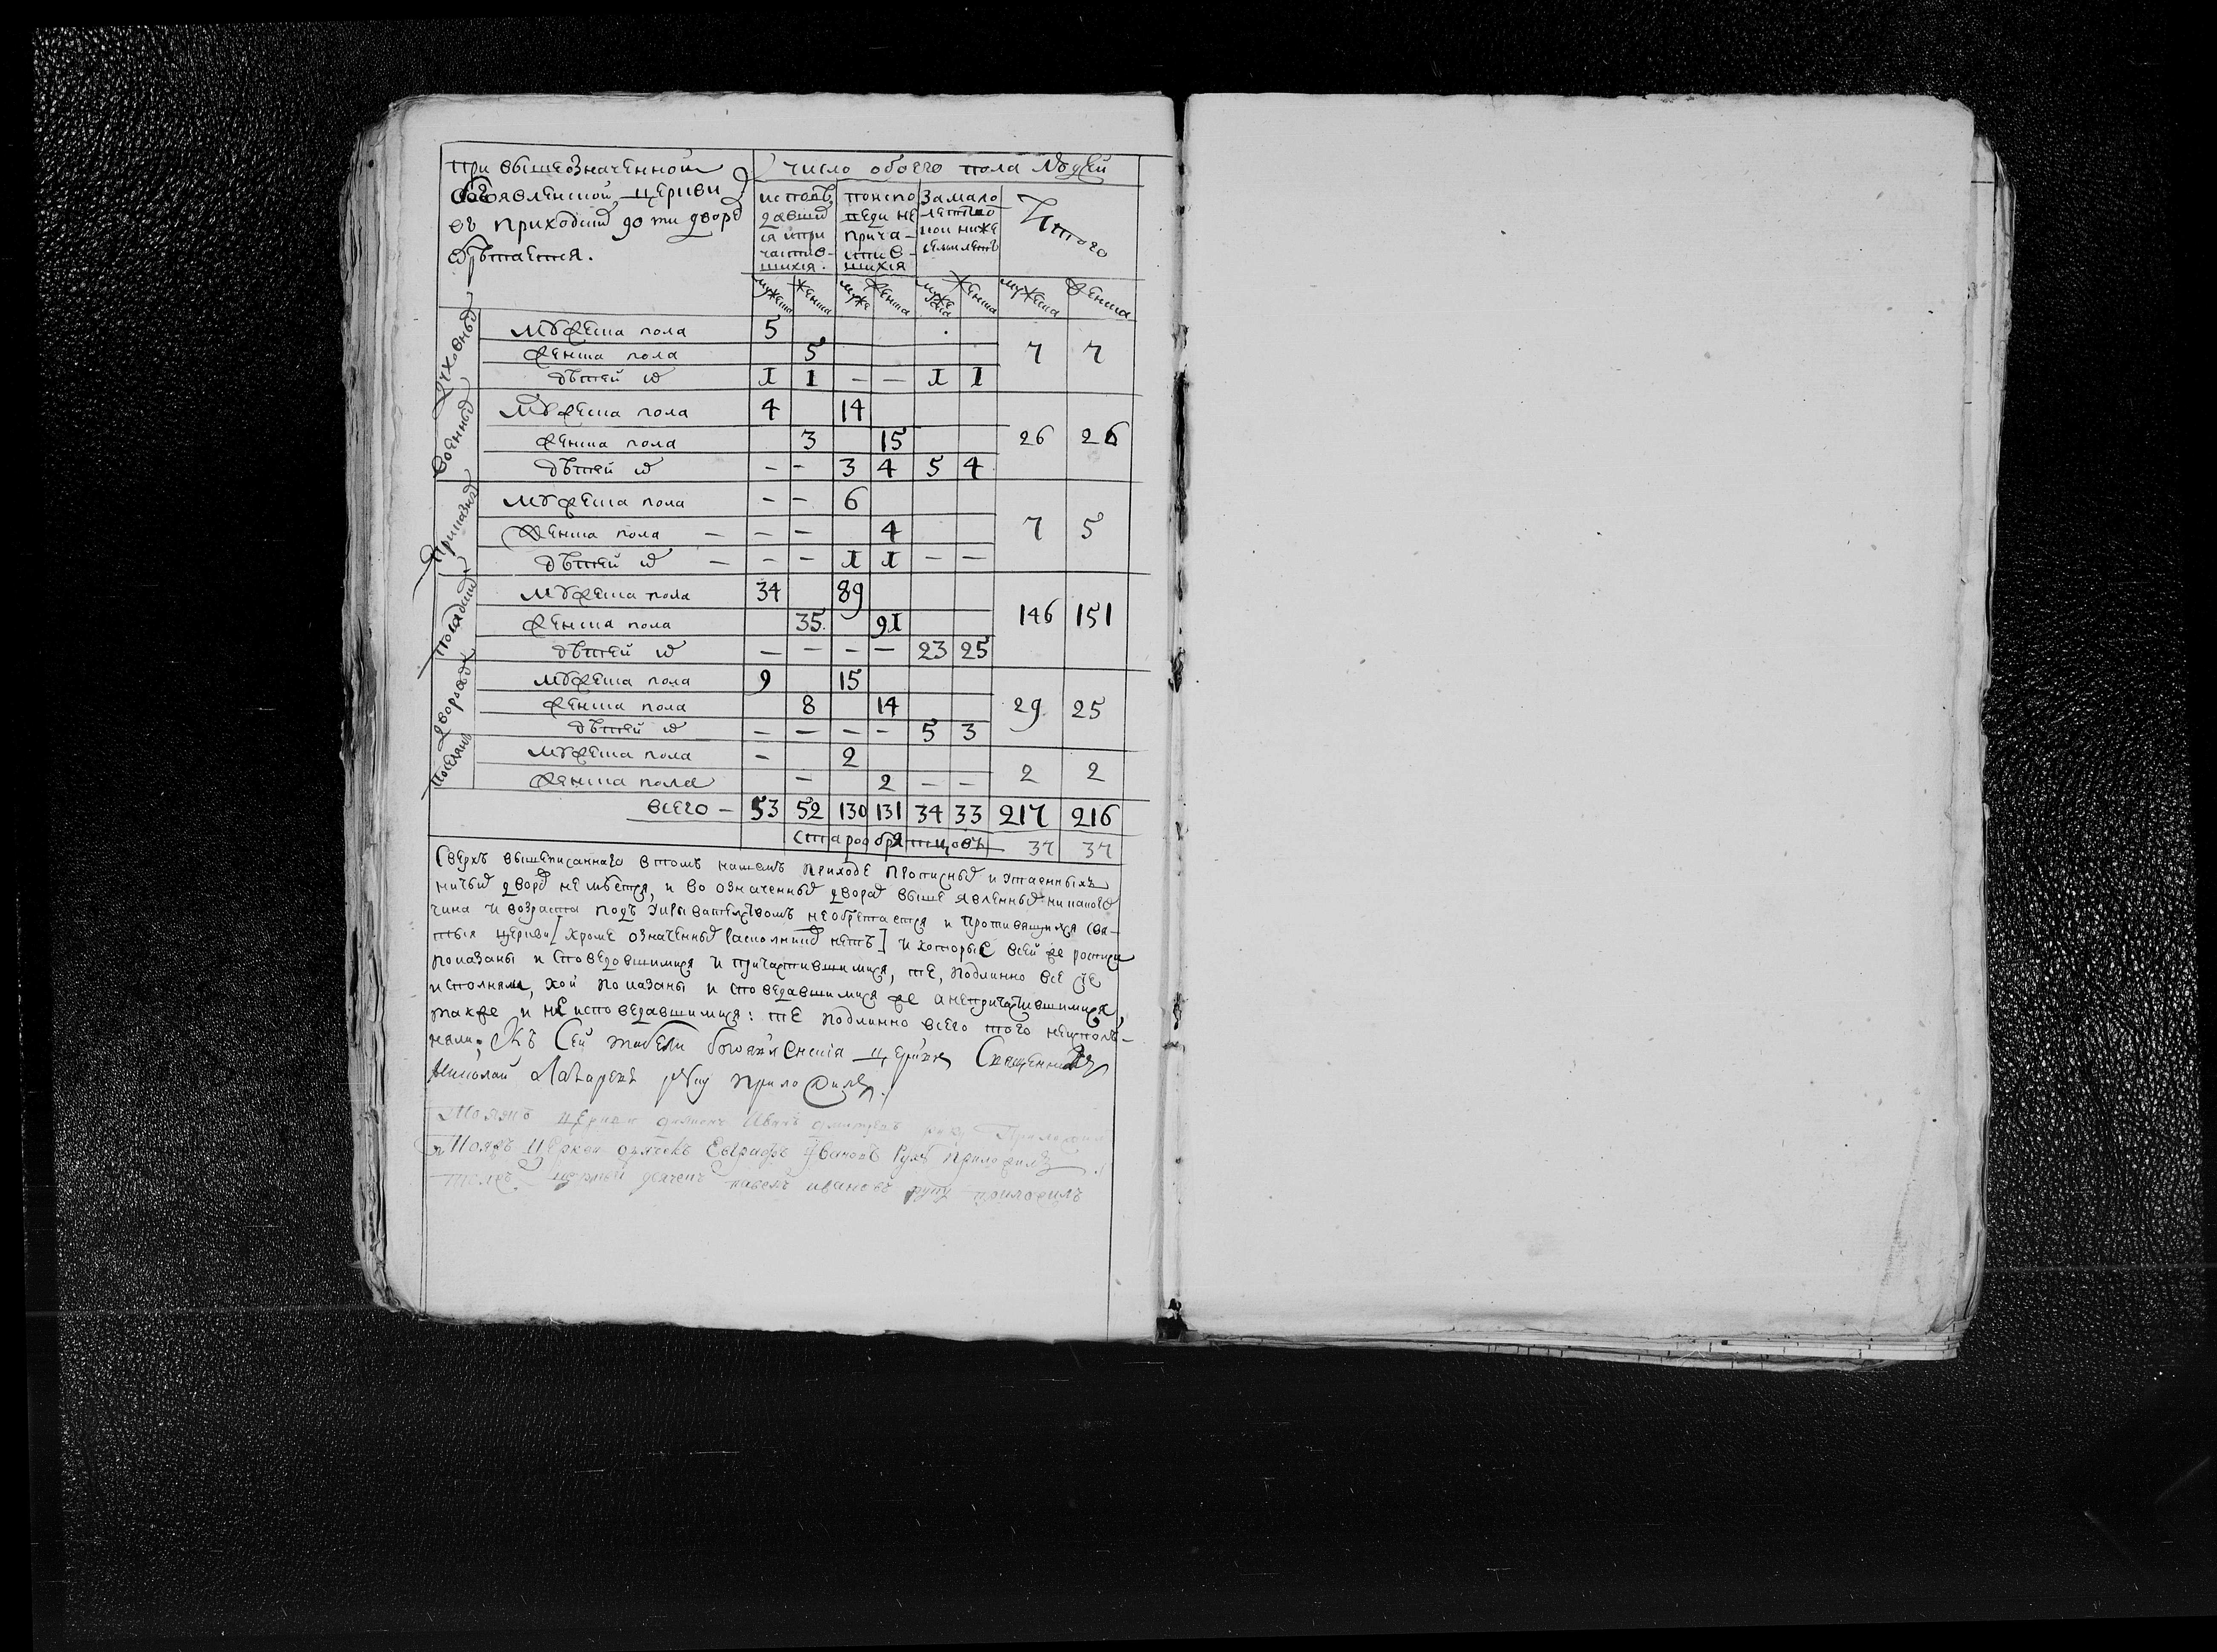 При вышеозначенной
Бгоявленской церкви
въ приходских 90 ти дворѣ
обрѣтается.
число обоего пола людей
исповѣдавшихся и причастившихся.
по исповеди не причастившихся
За малолетство кои ниже семи летъ
Итого
мужеска женска муже женска муже женска мужеска женска
Духовныхъ
мужеска пола 5
женска пола 5 7 7
дѣтей их 1 1 — — 1 1
Военныхъ
мужеска пола 4 14
женска пола 3 15 26 26
дѣтей их — — 3 4 5 4
Приказных
мужеска пола — — 6
женска пола — — — 4 7 5
дѣтей их — — — 1 1 — —
Посадских
мужеска пола 34 89
женска пола 35 91 146 151
дѣтей их — — — — 23 25
Дворовых
мужеска пола 9 15
женска пола 8 14 29 25
дѣтей их — — — — 5 3
Поселянъ
мужеска пола — 2
женска пола — 2 — — 2 2
всего — 53 52 130 131 34 33 217 216
старообрятцовъ 37 37
Сверхъ вышеписаннаго в томъ нашемъ приходе прописных и утаенныхъ
ничьих дворов не имѣется, и во означенных дворах выше явленных никакова
чина и возраста подъ укрывателствомъ не обретается и противящихся свя-
тыя церкви [кроме означенных раскольников нетъ] и которые в сей же росписи
показаны исповедавшимися и причастившимися, те, подлинно все се
исполняли, кои показаны исповедавшимися же а не причастившимися,
также и не исповедавшимися: те подлинно всего того не исполъ-
няли; Къ Сей табели богоявленския церкви Священникъ
Николай Лазаревъ руку приложилъ.
Тоя жъ церкви диаконъ Иванъ руку приложилъ
Тоя жъ церкви дьячекъ Евграфъ Ивановъ руку приложилъ
Тоя жъ церкви дьячекъ павелъ ивановъ руку приложилъ